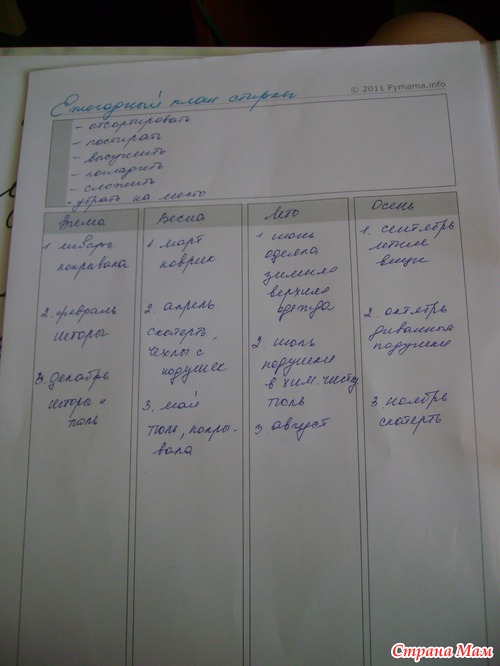 © 2011 Fymama.info
Ежегодный план стирки
- отсортировать
- постирать
- высушить
- погладить
- сложить
- убрать на место
Зима
1. январь
покрывала
2. февраль
шторы
3. декабрь
штора и
тюль
Весна
1. март
коврик
2. апрель
скатерть,
чехлы с
подушек
3. май
тюль, покры-
вала
Лето
1. июнь
одеяла
зимние
верхняя
одежда
2. июль
подушки
в хим. чистку
тюль
3. август
Осень
1. сентябрь
летние
вещи
2. октябрь
диванные
подушки
3. ноябрь
скатерть
Страна Мам